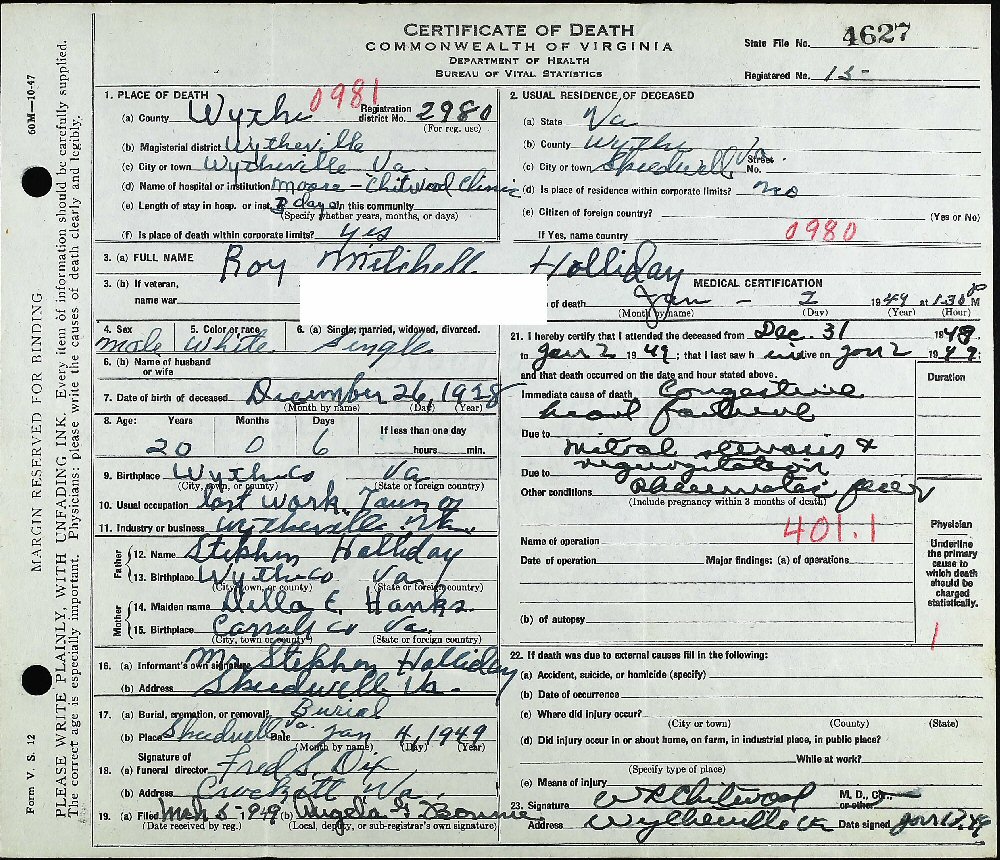 CERTIFICATE OF DEATH
COMMONWEALTH OF VIRGINIA
DEPARTMENT OF HEALTH
BUREAU OF VITAL STATISTICS
State File No. 4627
Registered No. 15-
60M—10-47
MARGIN RESERVED FOR BINDING
PLEASE WRITE PLAINLY, WITH UNFADING INK. Every item of information should be carefully supplied.
The correct age is especially important. Physicians: please write the causes of death clearly and legibly.
Form V. S. 12
1. PLACE OF DEATH 0981
(a) County Wythe Registration district No. 2980
(For reg. use)
(b) Magisterial district Wytheville
(c) City or town Wytheville Va.
(d) Name of hospital or institution Moore-Chitwood Clinic
(e) Length of stay in hosp. or inst. 3 days In this community
(Specify whether years, months, or days)
(f) Is place of death within corporate limits? yes
2. USUAL RESIDENCE OF DECEASED
(a) State Va
(b) County Wythe
(c) City or town Speedwell Va. Street No.
(d) Is place of residence within corporate limits? no
(e) Citizen of foreign country? (Yes or No)
If Yes, name country 0980
3. (a) FULL NAME Roy Mitchell Holliday
3. (b) If veteran, name war
MEDICAL CERTIFICATION
of death Jan - 2 1949 at 1:30 P M
(Month by name) (Day) (Year) (Hour)
4. Sex male
5. Color or race white
6. (a) Single, married, widowed, divorced. Single
6. (b) Name of husband or wife
7. Date of birth of deceased December 26, 1928
(Month by name) (Day) (Year)
8. Age: Years Months Days If less than one day
20 0 6 hours min.
9. Birthplace Wythe Co Va
(City, town, or county) (State or foreign country)
10. Usual occupation last work. Town of
11. Industry or business Wytheville Va.
Father
12. Name Stephen Holliday
13. Birthplace Wythe co Va
(City, town, or county) (State or foreign country)
Mother
14. Maiden name Della E. Hanks
15. Birthplace Carroll co Va.
(City, town or county) (State or foreign country)
16. (a) Informant's own signature Mr Stephen Holliday
(b) Address Speedwell Va.
17. (a) Burial, cremation, or removal? Burial
(b) Place Speedwell Va. Date Jan 4, 1949
(Month by name) (Day) (Year)
Signature of
18. (a) funeral director Fred S. Dix
(b) Address Crockett Va.
19. (a) Filed Mch 5-949 (b) Angela H Bonnie
(Date received by reg.) (Local, deputy, or sub-registrar's own signature)
21. I hereby certify that I attended the deceased from Dec. 31 1948
to Jan 2 1949; that I last saw him alive on Jan 2 1949:
and that death occurred on the date and hour stated above.
Duration
Immediate cause of death Congestive
heart failure
Due to mitral stenosis &
Due to regurgitation
Other conditions Rheumatic fever
(Include pregnancy within 3 months of death)
401.1
Name of operation
Date of operation Major findings: (a) of operations
(b) of autopsy
Physician
Underline the primary cause to which death should be charged statistically.
1
22. If death was due to external causes fill in the following:
(a) Accident, suicide, or homicide (specify)
(b) Date of occurrence
(c) Where did injury occur?
(City or town) (County) (State)
(d) Did injury occur in or about home, on farm, in industrial place, in public place?
While at work?
(Specify type of place)
(e) Means of injury
23. Signature W R Chitwood M. D., or other
Address Wytheville Va Date signed Jan 12. 49